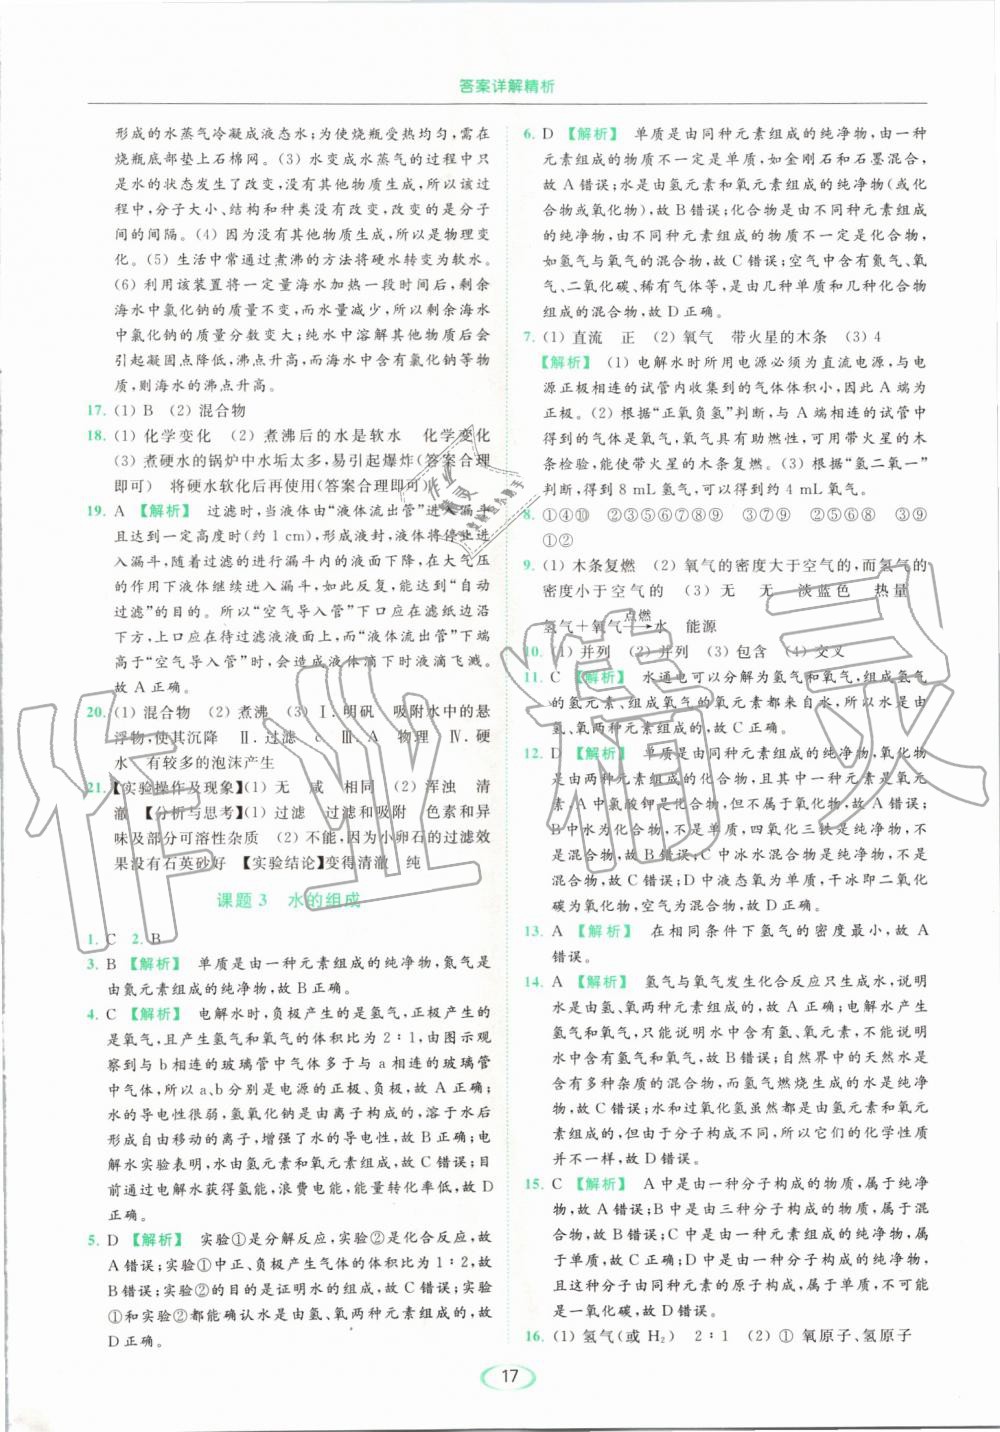 答案详解精析
形成的水蒸气冷凝成液态水;为使烧瓶受热均匀,需在
烧瓶底部垫上石棉网。(3) 水变成水蒸气的过程中只
是水的状态发生了改变,没有其他物质生成,所以该过
程中,分子大小、结构和种类没有改变,改变的是分子
间的间隔。(4) 因为没有其他物质生成,所以是物理变
化。(5) 生活中常通过煮沸的方法将硬水转变为软水。
(6) 利用该装置将一定量海水加热一段时间后,剩余
海水中氯化钠的质量不变,而水减少了,所以剩余海水
中氯化钠的质量分数变大;纯水中溶解其他物质后会
引起凝固点降低,沸点升高,而海水中含有氯化钠等物
质,则海水的沸点升高。
17. (1) B (2) 混合物
18. (1) 化学变化 (2) 煮沸后的水是软水 化学变化
(3) 煮硬水的锅炉中水垢太多,易引起爆炸(答案合理
即可) 将硬水软化后再使用(答案合理即可)
19. A 【解析】 过滤时,当液体由“液体流出管”进入漏斗
且达到一定高度时(约 1 cm),形成液封,液体不再进
入漏斗,随着过滤的进行,漏斗内的液面下降,在大气压
的作用下液体继续进入漏斗,如此反复,能达到“自动
过滤”的目的。所以“空气导入管”下口应在滤纸边沿
下方,上口应在待过滤液液面上方;而“液体流出管”下端
高于“空气导入管”时,会造成液体滴下时液滴飞溅。
故 A 正确。
20. (1) 混合物 (2) 煮沸 (3) Ⅰ.明矾 吸附水中的悬
浮物,使其沉降 Ⅱ.过滤 c Ⅲ.A 物理 Ⅳ.硬
水 有较多的泡沫产生
21. 【实验操作及现象】(1) 无 咸 相同 (2) 浑浊 清
澈 【分析与思考】(1) 过滤 过滤和吸附 色素和异
味及部分可溶性杂质 (2) 不能,因为小卵石的过滤效
果没有石英砂好 【实验结论】变得清澈 纯
课题 3 水的组成
1. C 2. B
3. B 【解析】 单质是由一种元素组成的纯净物,氮气是
由氮元素组成的纯净物。故 B 正确。
4. C 【解析】 电解水时,负极产生的是氢气,正极产生的
是氧气,且产生氢气和氧气的体积比为 2∶1,由图示观
察到与 b 相连的玻璃管中气体多于与 a 相连的玻璃管
中气体,所以 a、b 分别是电源的正极、负极,故 A 正确;
水的导电性很弱,氢氧化钠是由离子构成的,溶于水后
形成自由移动的离子,增强了水的导电性,故 B 正确;电
解水实验表明,水由氢元素和氧元素组成,故 C 错误;目
前通过电解水获得氢能,浪费电能,能量转化率低,故 D
正确。
5. D 【解析】 实验①是分解反应,实验②是化合反应,故
A 错误;实验①中正、负极产生气体的体积比为 1∶2,故
B 错误;实验②的目的是证明水的组成,故 C 错误;实验
①和实验②都能确认水是由氢、氧两种元素组成的,故
D 正确。
6. D 【解析】 单质是由同种元素组成的纯净物,由一种
元素组成的物质不一定是单质,如金刚石和石墨混合,
故 A 错误;水是由氢元素和氧元素组成的纯净物(或化
合物或氧化物),故 B 错误;化合物是由不同种元素组成
的纯净物,由不同种元素组成的物质不一定是化合物,
如氢气与氧气的混合物,故 C 错误;空气中含有氮气、氧
气、二氧化碳、稀有气体等,是由几种单质和几种化合物
组成的混合物,故 D 正确。
7. (1) 直流 正 (2) 氧气 带火星的木条 (3) 4
【解析】 (1) 电解水时所用电源必须为直流电源,与电
源正极相连的试管内收集到的气体体积小,因此 A 端为
正极。(2) 根据“正氧负氢”判断,与 A 端相连的试管中
得到的气体是氧气,氧气具有助燃性,可用带火星的木
条检验,能使带火星的木条复燃。(3) 根据“氢二氧一”
判断,得到 8 mL 氢气,可得到约 4 mL 氧气。
8. ①④⑩ ②③⑤⑥⑦⑧⑨ ②⑤⑥⑦⑧ ③⑨
①②
9. (1) 木条复燃 (2) 氧气的密度大于空气的,而氢气的
密度小于空气的 (3) 无 无 淡蓝色 热量
氢气+氧气 点燃→ 水 能源
10. (1) 并列 (2) 并列 (3) 包含 (4) 交叉
11. C 【解析】 水通电可以分解为氢气和氧气,组成氢气
的氢元素、组成氧气的氧元素都来自水,所以水是由
氢、氧两种元素组成的,故 C 正确。
12. D 【解析】 单质是由同种元素组成的纯净物,氧化物
是由两种元素组成的化合物,且其中一种元素是氧元
素。A 中氯酸钾是化合物,但不属于氧化物,故 A 错误;
B 中水为化合物,不是单质,四氧化三铁是纯净物,不
是混合物,故 B 错误;C 中冰水混合物是纯净物,不是
混合物,故 C 错误;D 中液态氧为单质,干冰即二氧化
碳为化合物,空气为混合物,故 D 正确。
13. A 【解析】 在相同条件下氢气的密度最小,故 A
错误。
14. A 【解析】 氢气与氧气发生化合反应只生成水,说明
水是由氢、氧两种元素组成的,故 A 正确;电解水产生
氢气和氧气,只能说明水中含有氢、氧元素,不能说明
水中含有氧气,故 B 错误;自然界中的天然水是
含有多种杂质的混合物,而氢气燃烧生成的水是纯净
物,故 C 错误;水和过氧化氢虽然都是由氢元素和氧元
素组成的,但由于分子构成不同,所以它们的化学性质
并不一样,故 D 错误。
15. C 【解析】 A 中是由一种分子构成的物质,属于纯净
物,故 A 错误;B 中是由三种分子构成的物质,属于混合
物,故 B 错误;C 中是由一种元素组成的纯净物,属于单
质,故 C 正确;D 中是由一种分子构成的纯净物,
且这些分子由同种元素的原子构成,属于单质,不可能
是一氧化碳,故 D 错误。
16. (1) 氢气(或 H₂) 2∶1 (2) ① 氧原子、氢原子
17
作业精灵